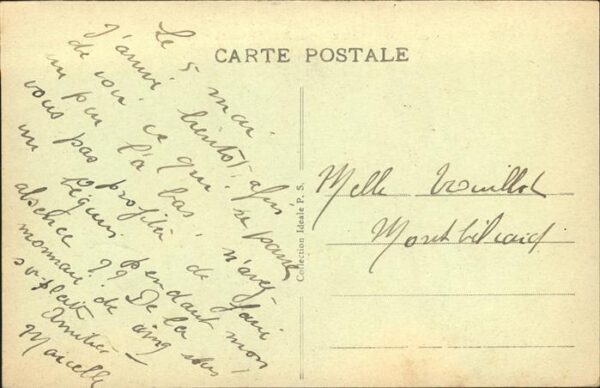 CARTE POSTALE
Le 5 mai
J'arrive bientot, afin
de voir ce qui se passe
un peu là bas; n'avez
vous pas profité de faire
un béguin pendant mon
absence ?? De la
monnaie de cinq sous
s-v-plait
Amitiés –
Marcelle
Collection Ideale P. S.
Melle Vrouillot
Montbéliard